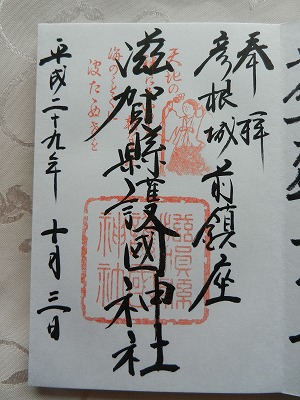 奉拝
彦根城前鎮座
滋賀縣護國神社
平成二十九年 十月 三日
天地の
波たゝきを
滋賀縣
護國
神社